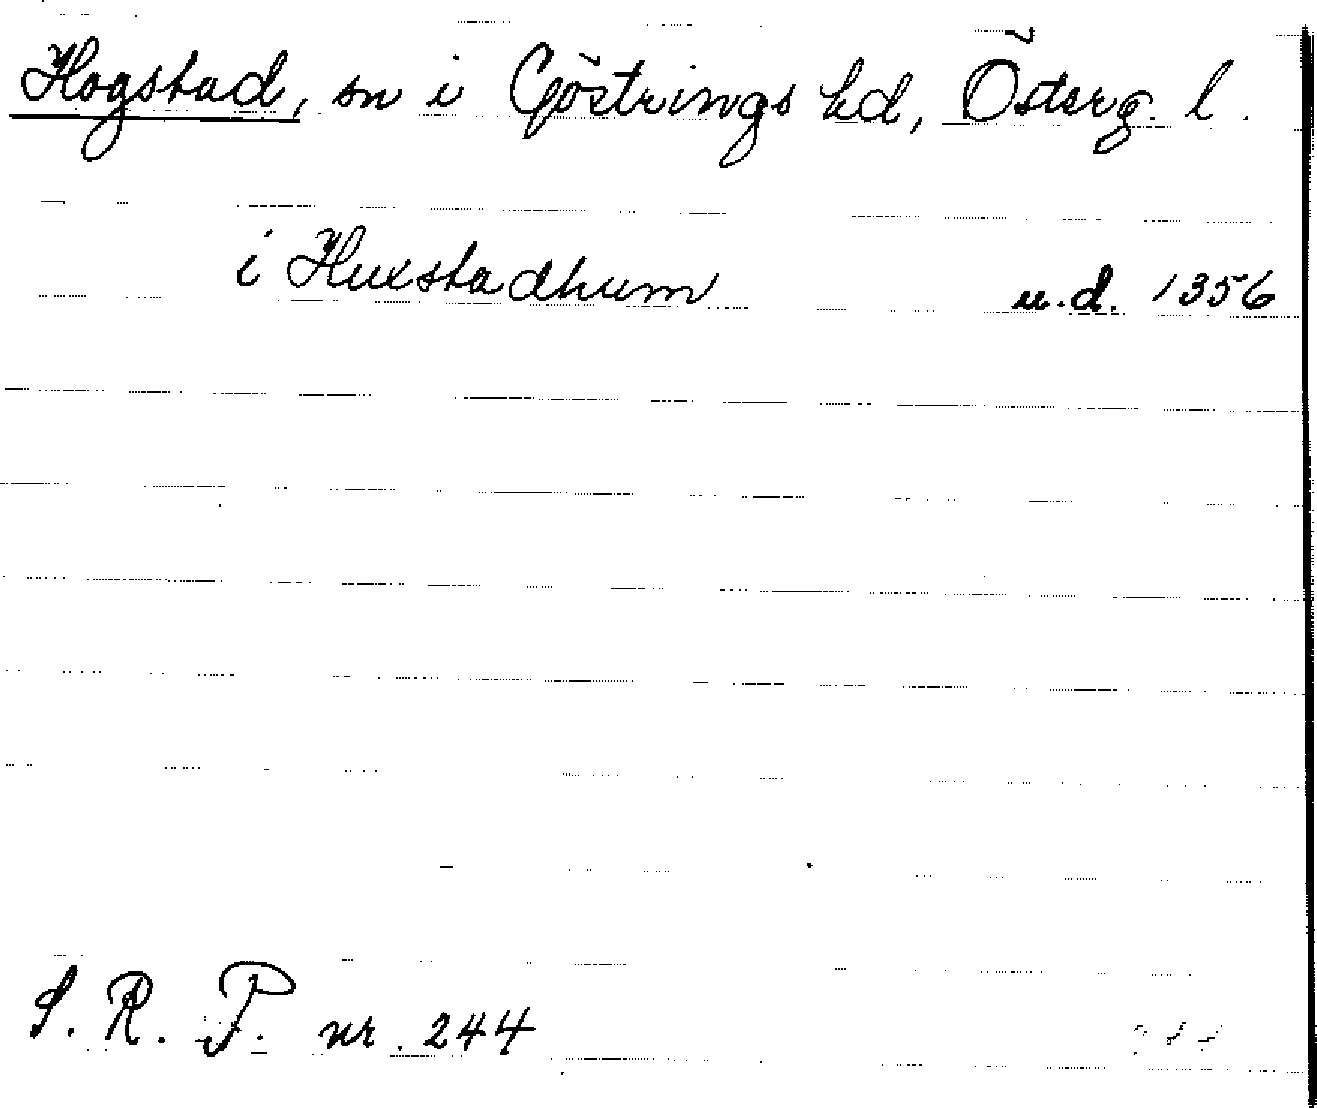 Hogstad, sn i Göstrings hd, Österg. l.
i Huxstadhum u.d. 1356
S. R. P. nr. 244